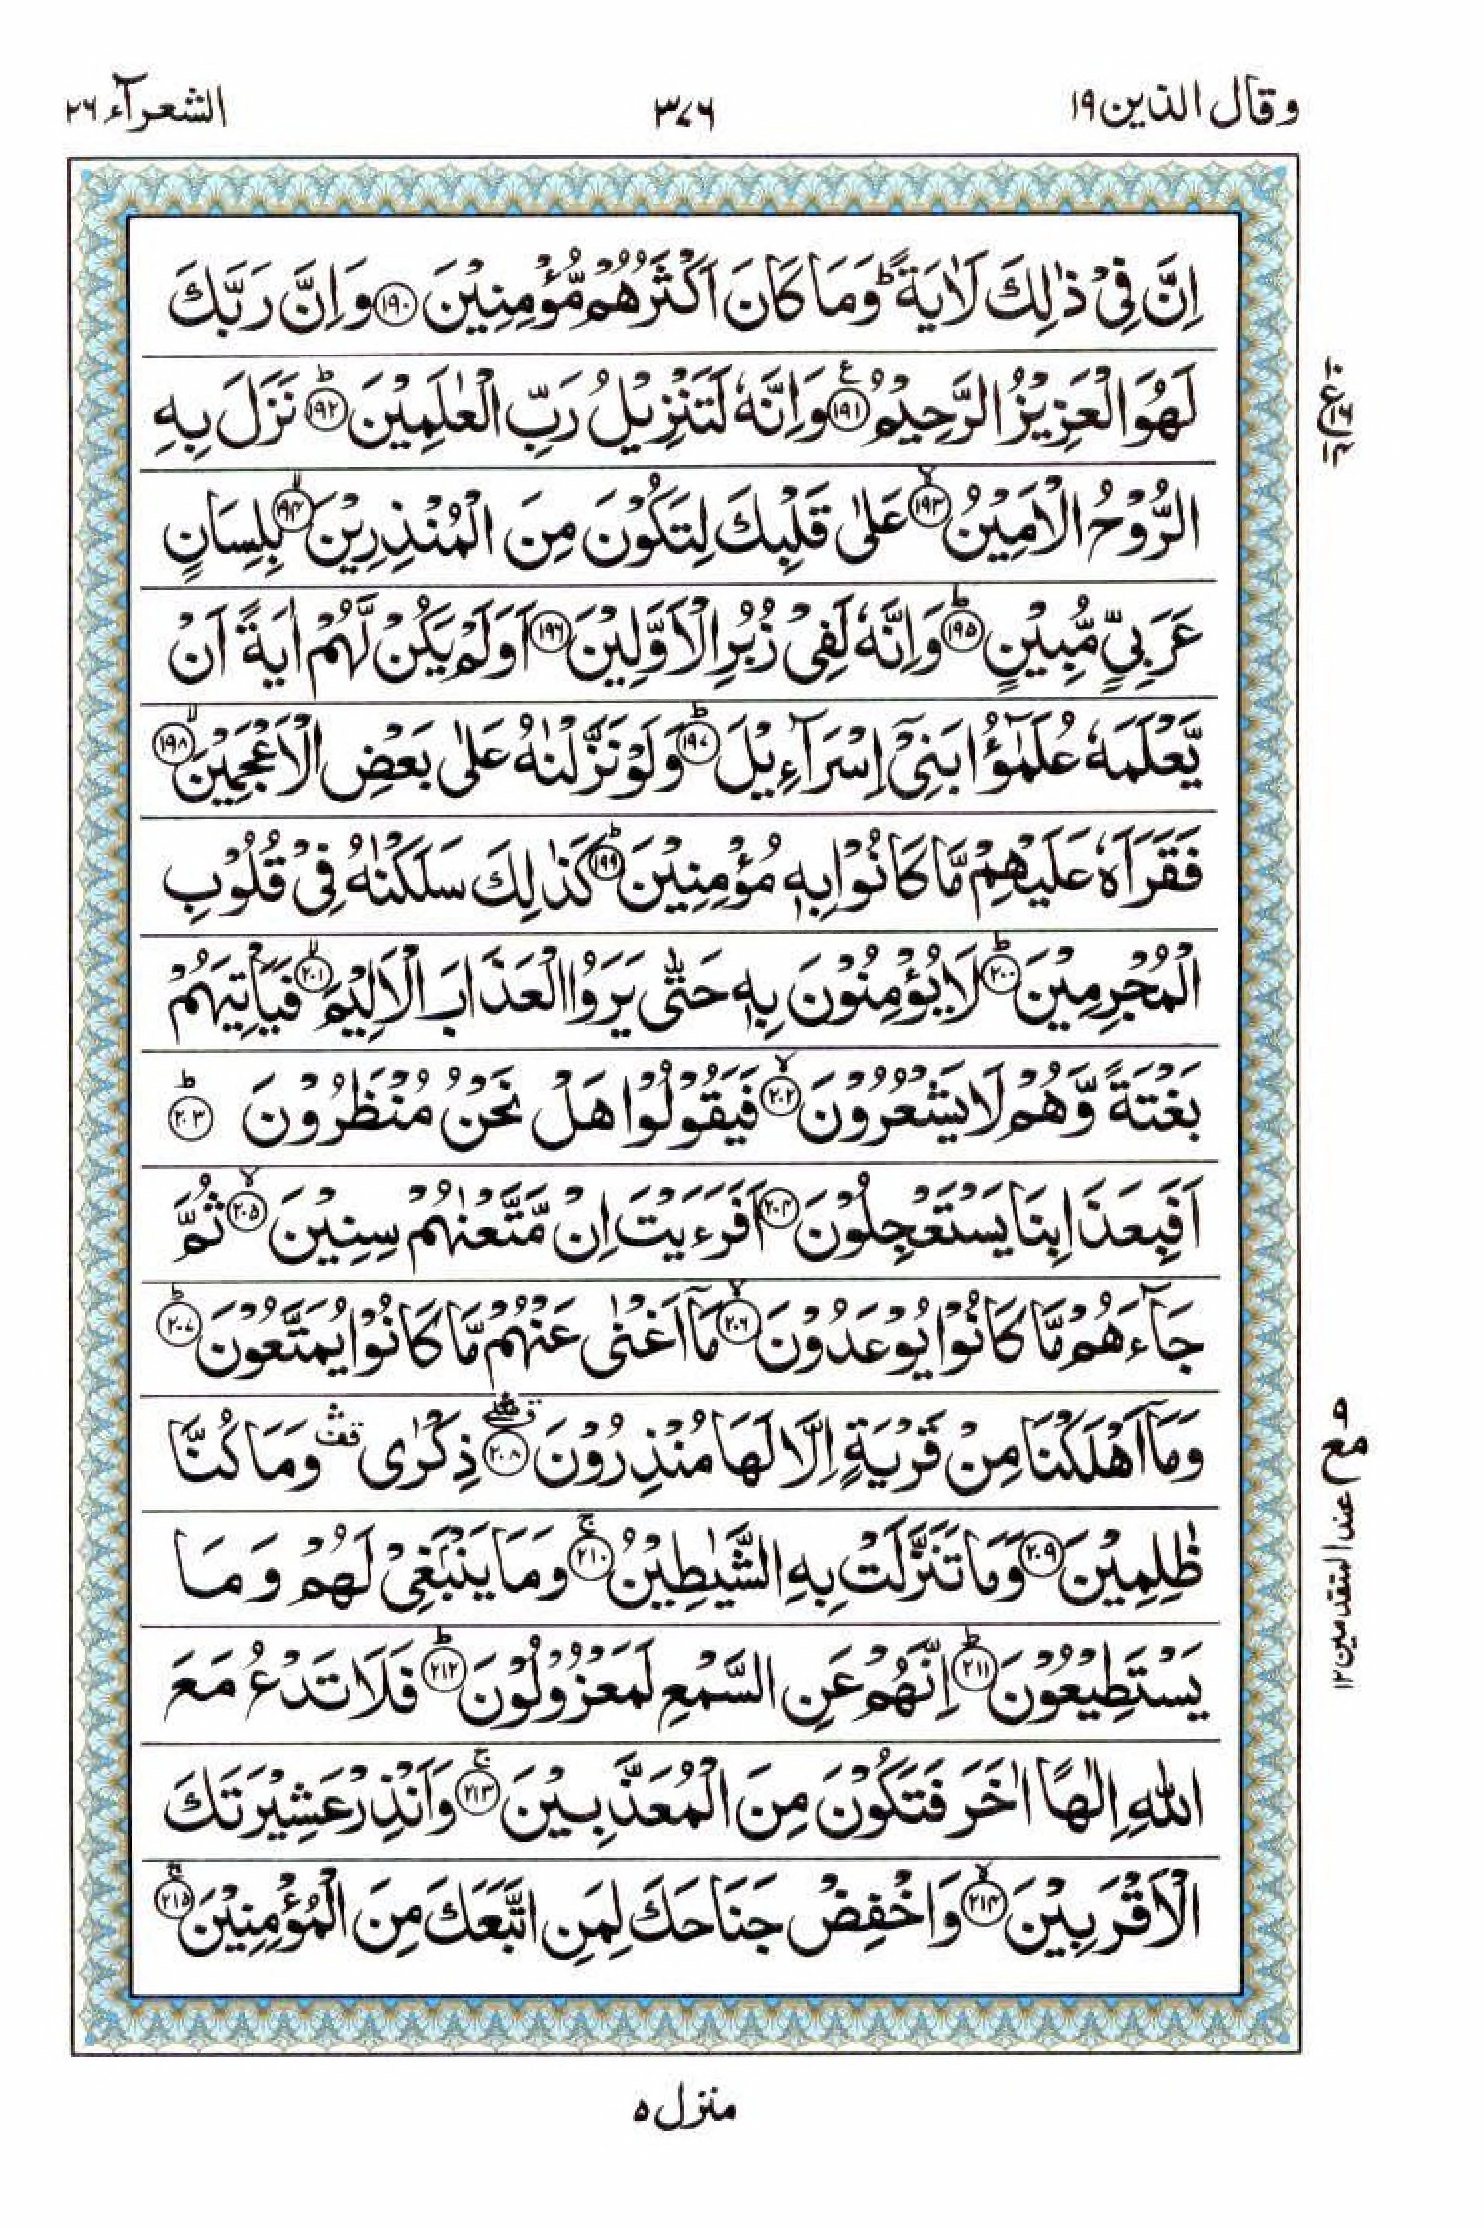 وقال الذین ۱۹
۳۷۶
الشعرآء ۲۶
اِنَّ فِیْ ذٰلِكَ لَاٰیَةً ؕ وَمَا كَانَ اَكْثَرُهُمْ مُّؤْمِنِیْنَ ۱۹۰ وَاِنَّ رَبَّكَ
لَهُوَ الْعَزِیْزُ الرَّحِیْمُ ۱۹۱ وَاِنَّهٗ لَتَنْزِیْلُ رَبِّ الْعٰلَمِیْنَ ۱۹۲ نَزَلَ بِهِ
الرُّوْحُ الْاَمِیْنُ ۱۹۳ عَلٰی قَلْبِكَ لِتَكُوْنَ مِنَ الْمُنْذِرِیْنَ ۱۹۴ بِلِسَانٍ
عَرَبِیٍّ مُّبِیْنٍ ۱۹۵ وَاِنَّهٗ لَفِیْ زُبُرِ الْاَوَّلِیْنَ ۱۹۶ اَوَلَمْ یَكُنْ لَّهُمْ اٰیَةً اَنْ
یَّعْلَمَهٗ عُلَمٰٓؤُا بَنِیْۤ اِسْرَآءِیْلَ ۱۹۷ وَلَوْ نَزَّلْنٰهُ عَلٰی بَعْضِ الْاَعْجَمِیْنَ ۱۹۸
فَقَرَاَهٗ عَلَیْهِمْ مَّا كَانُوْا بِهٖ مُؤْمِنِیْنَ ۱۹۹ كَذٰلِكَ سَلَكْنٰهُ فِیْ قُلُوْبِ
الْمُجْرِمِیْنَ ۲۰۰ لَا یُؤْمِنُوْنَ بِهٖ حَتّٰی یَرَوُا الْعَذَابَ الْاَلِیْمَ ۲۰۱ فَیَاْتِیَهُمْ
بَغْتَةً وَّهُمْ لَا یَشْعُرُوْنَ ۲۰۲ فَیَقُوْلُوْا هَلْ نَحْنُ مُنْظَرُوْنَ ۲۰۳
اَفَبِعَذَابِنَا یَسْتَعْجِلُوْنَ ۲۰۴ اَفَرَءَیْتَ اِنْ مَّتَّعْنٰهُمْ سِنِیْنَ ۲۰۵ ثُمَّ
جَآءَهُمْ مَّا كَانُوْا یُوْعَدُوْنَ ۲۰۶ مَاۤ اَغْنٰی عَنْهُمْ مَّا كَانُوْا یُمَتَّعُوْنَ ۲۰۷
وَمَاۤ اَهْلَكْنَا مِنْ قَرْیَةٍ اِلَّا لَهَا مُنْذِرُوْنَ ۲۰۸ ذِكْرٰی وَمَا كُنَّا
ظٰلِمِیْنَ ۲۰۹ وَمَا تَنَزَّلَتْ بِهِ الشَّیٰطِیْنُ ۲۱۰ وَمَا یَنْۢبَغِیْ لَهُمْ وَمَا
یَسْتَطِیْعُوْنَ ۲۱۱ اِنَّهُمْ عَنِ السَّمْعِ لَمَعْزُوْلُوْنَ ۲۱۲ فَلَا تَدْعُ مَعَ
اللّٰهِ اِلٰهًا اٰخَرَ فَتَكُوْنَ مِنَ الْمُعَذَّبِیْنَ ۲۱۳ وَاَنْذِرْ عَشِیْرَتَكَ
الْاَقْرَبِیْنَ ۲۱۴ وَاخْفِضْ جَنَاحَكَ لِمَنِ اتَّبَعَكَ مِنَ الْمُؤْمِنِیْنَ ۲۱۵
عند المتقدمین ۱۲
منزل ۵